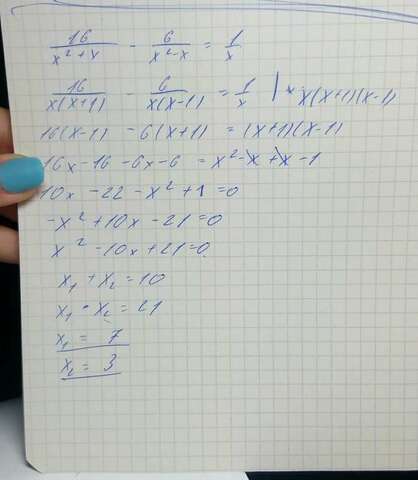 16/(x²+x) - 6/(x²-x) = 1/x
16/(x(x+1)) - 6/(x(x-1)) = 1/x | * x(x+1)(x-1)
16(x-1) - 6(x+1) = (x+1)(x-1)
16x - 16 - 6x - 6 = x² - x + x - 1
10x - 22 - x² + 1 = 0
-x² + 10x - 21 = 0
x² - 10x + 21 = 0
x₁ + x₂ = 10
x₁ * x₂ = 21
x₁ = 7
x₂ = 3